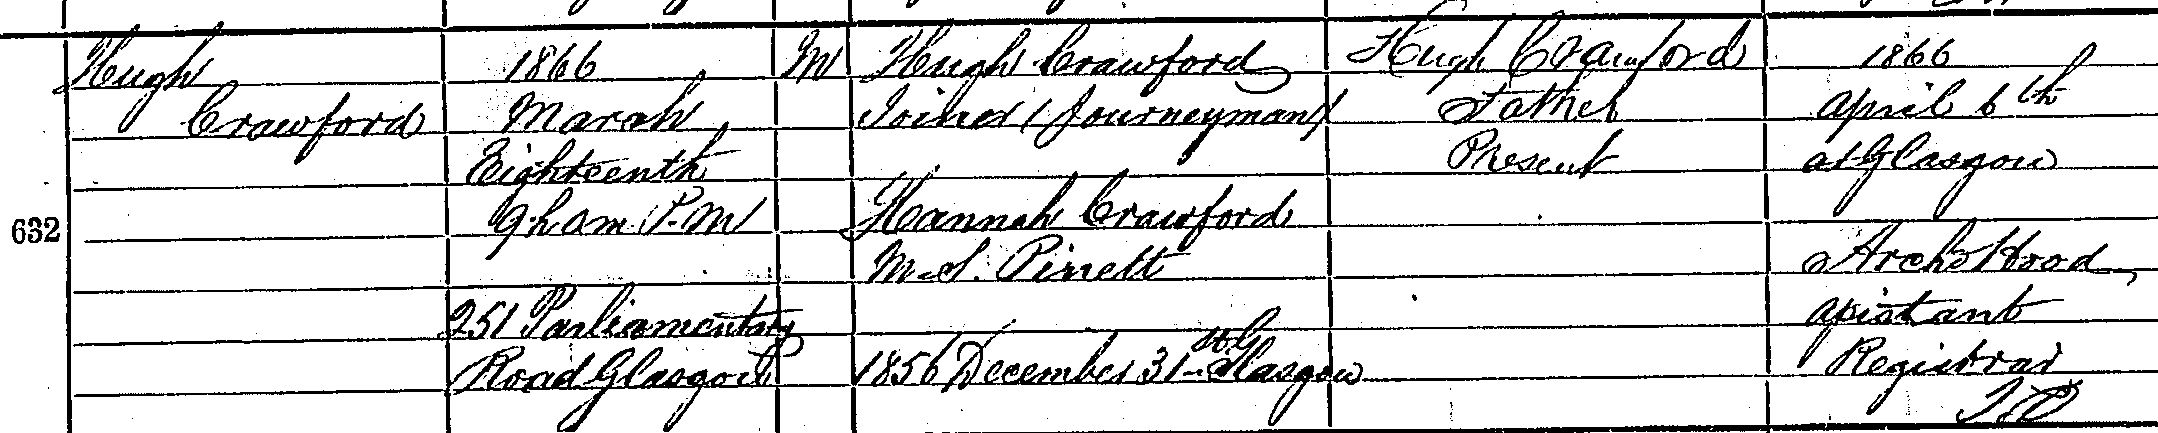 Hugh
Crawford
632
1866
March
Eighteenth
9h 0m P.M
251 Parliamentary
Road Glasgow
M
Hugh Crawford
Joiner (Journeyman)
Hannah Crawford
M.S. Pirrett
1856 December 31st Glasgow
Hugh Crawford
Father
Present
1866
April 6th
at Glasgow
Archd Hood
Assistant
Registrar